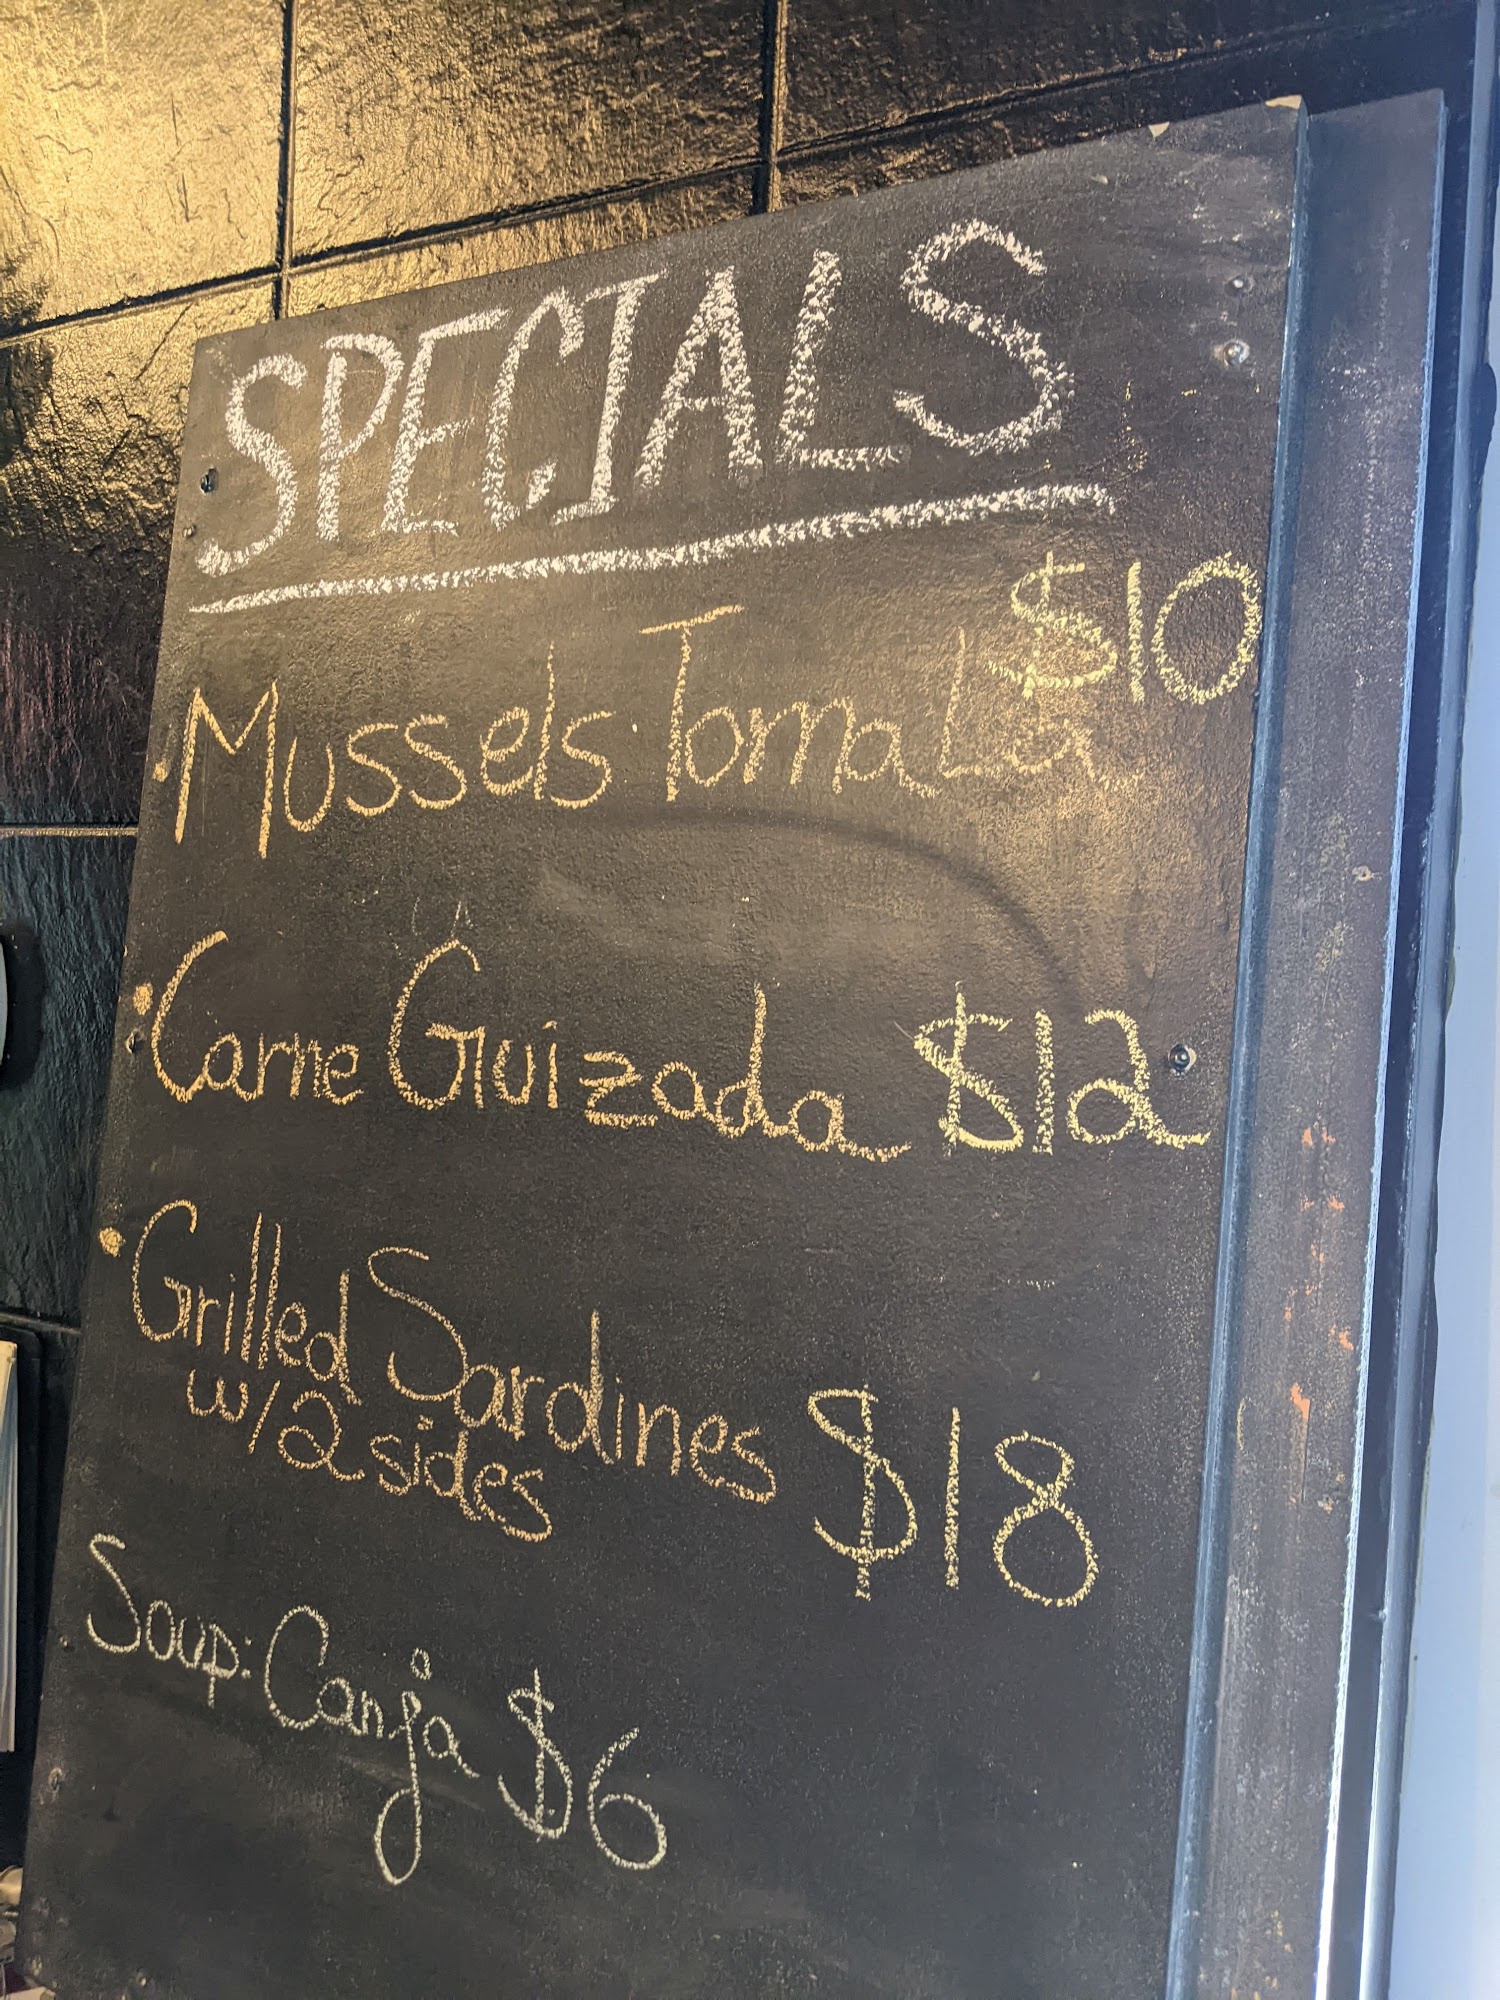 SPECIALS
$10
• Mussels Tomala
• Carne Guizada $12
• Grilled Sardines $18
w/2 sides
Soup: Canja $6